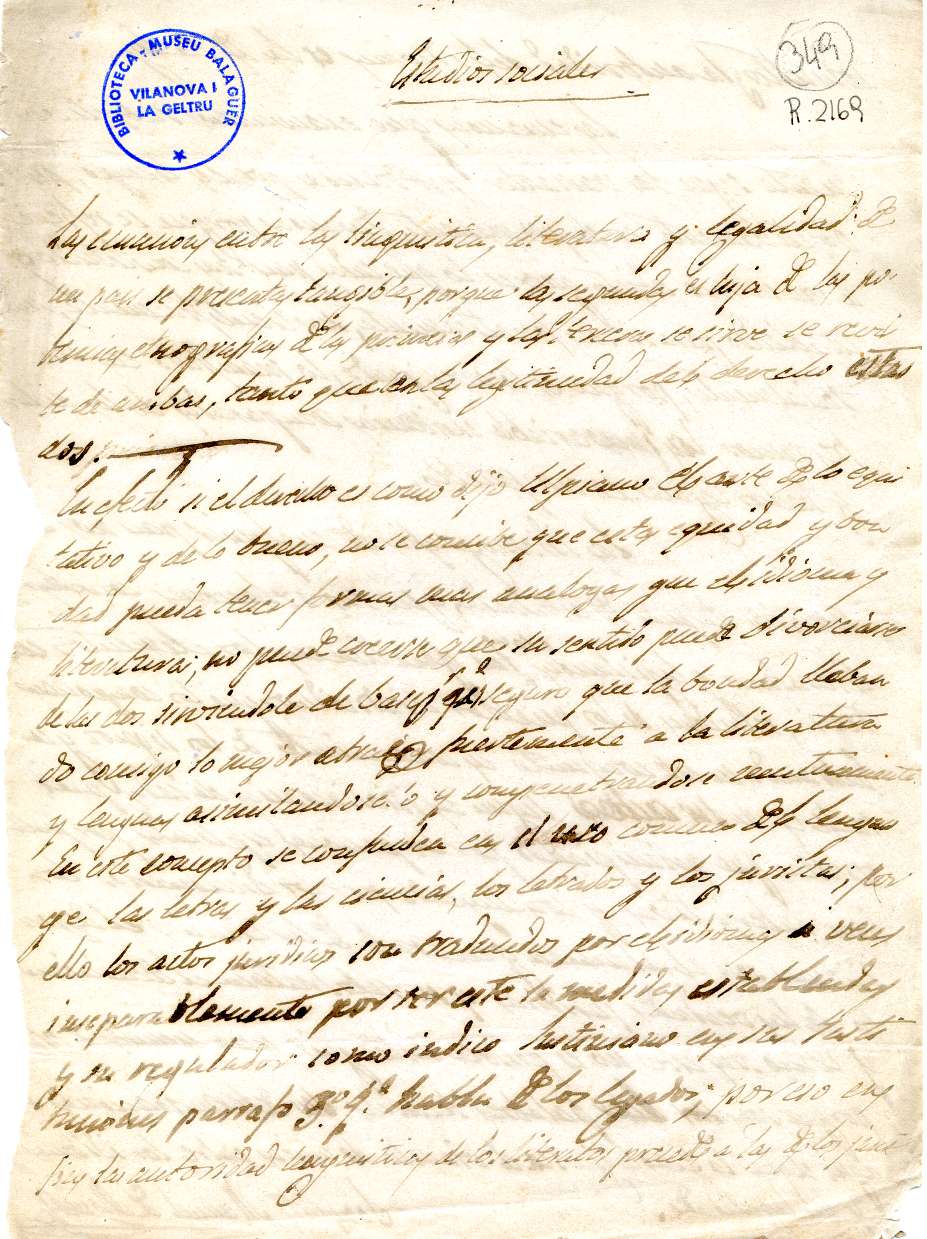 BIBLIOTECA - MUSEU BALAGUER
VILANOVA I
LA GELTRU
Estudios sociales
349
R. 2169
entre la linguistica, literatura y legalidad de
un pais se presenta ostensible, porque la segunda es hija de las
de la primera y la tercera se sirve se revis
te de ambas, tanto que en la legitimidad del derecho estas
dos.
En efecto si el derecho es como dijo Ulpiano el arte de lo equi
tativo y de lo bueno, no se concibe que esta equidad y bon
dad pueda tener formas mas analogas que el idioma y
literatura; no puede creerse que su sentido puede divorciarse
de las dos sirviendole de base seguro que la bondad lleban
do consigo lo mejor fuertemente a la literatura
y lengua asimilandoselo y compenetrandose mutuamente.
En este concepto se confunden en el uso comun de la lengua
ge las letras y las ciencias, los letrados y los juristas; por
ello los actos juridicos son traducidos por el idioma a veces
inseparablemente por ser este la medida establecida
y su regulador como indico Justiniano en su Insti
tuciones parrafo 3º habla de los legados; por eso en
la autoridad linguistica de los literatos precede a la de los juris